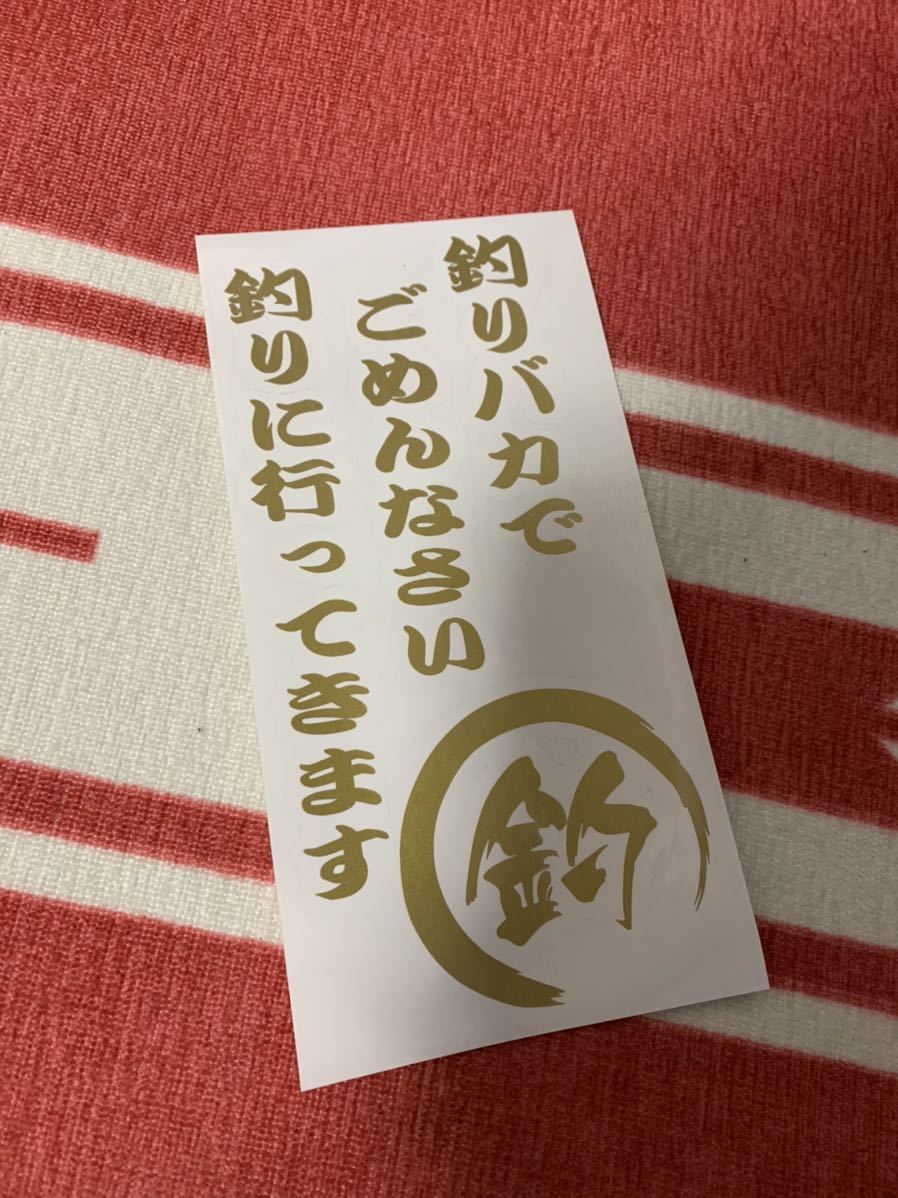 釣りバカで
ごめんなさい
釣りに行ってきます
釣